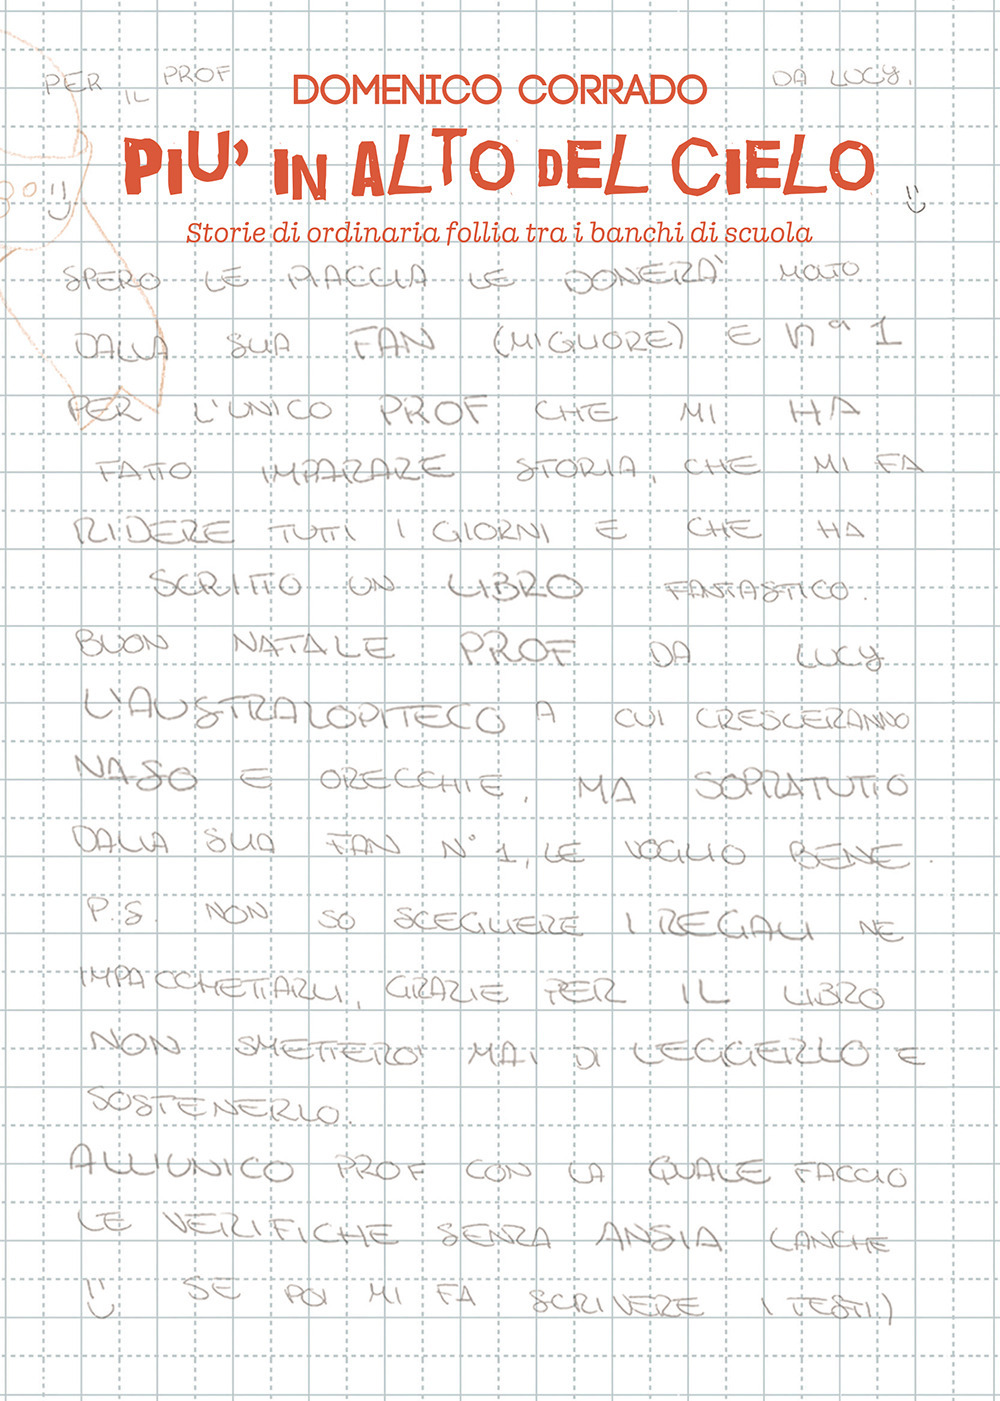 PER IL PROF DA LUCY.
DOMENICO CORRADO
PIU' IN ALTO DEL CIELO
Storie di ordinaria follia tra i banchi di scuola
SPERO LE PIACCIA LE DONERA' MOLTO
DALLA SUA FAN (MIGLIORE) E Nº 1
PER L'UNICO PROF CHE MI HA
FATTO IMPARARE STORIA, CHE MI FA
RIDERE TUTTI I GIORNI E CHE HA
SCRITTO UN LIBRO FANTASTICO.
BUON NATALE PROF DA LUCY
L'AUSTRALOPITECO A CUI CRESCERANNO
NASO E ORECCHIE, MA SOPRATUTTO
DALLA SUA FAN N° 1, LE VOGLIO BENE.
P.S. NON SO SCEGLIERE I REGALI NE
IMPACCHETTARLI, GRAZIE PER IL LIBRO
NON SMETTERO' MAI DI LEGGERLO E
SOSTENERLO.
ALL'UNICO PROF CON LA QUALE FACCIO
LE VERIFICHE SENZA ANSIA (ANCHE
SE POI MI FA SCRIVERE I TESTI)